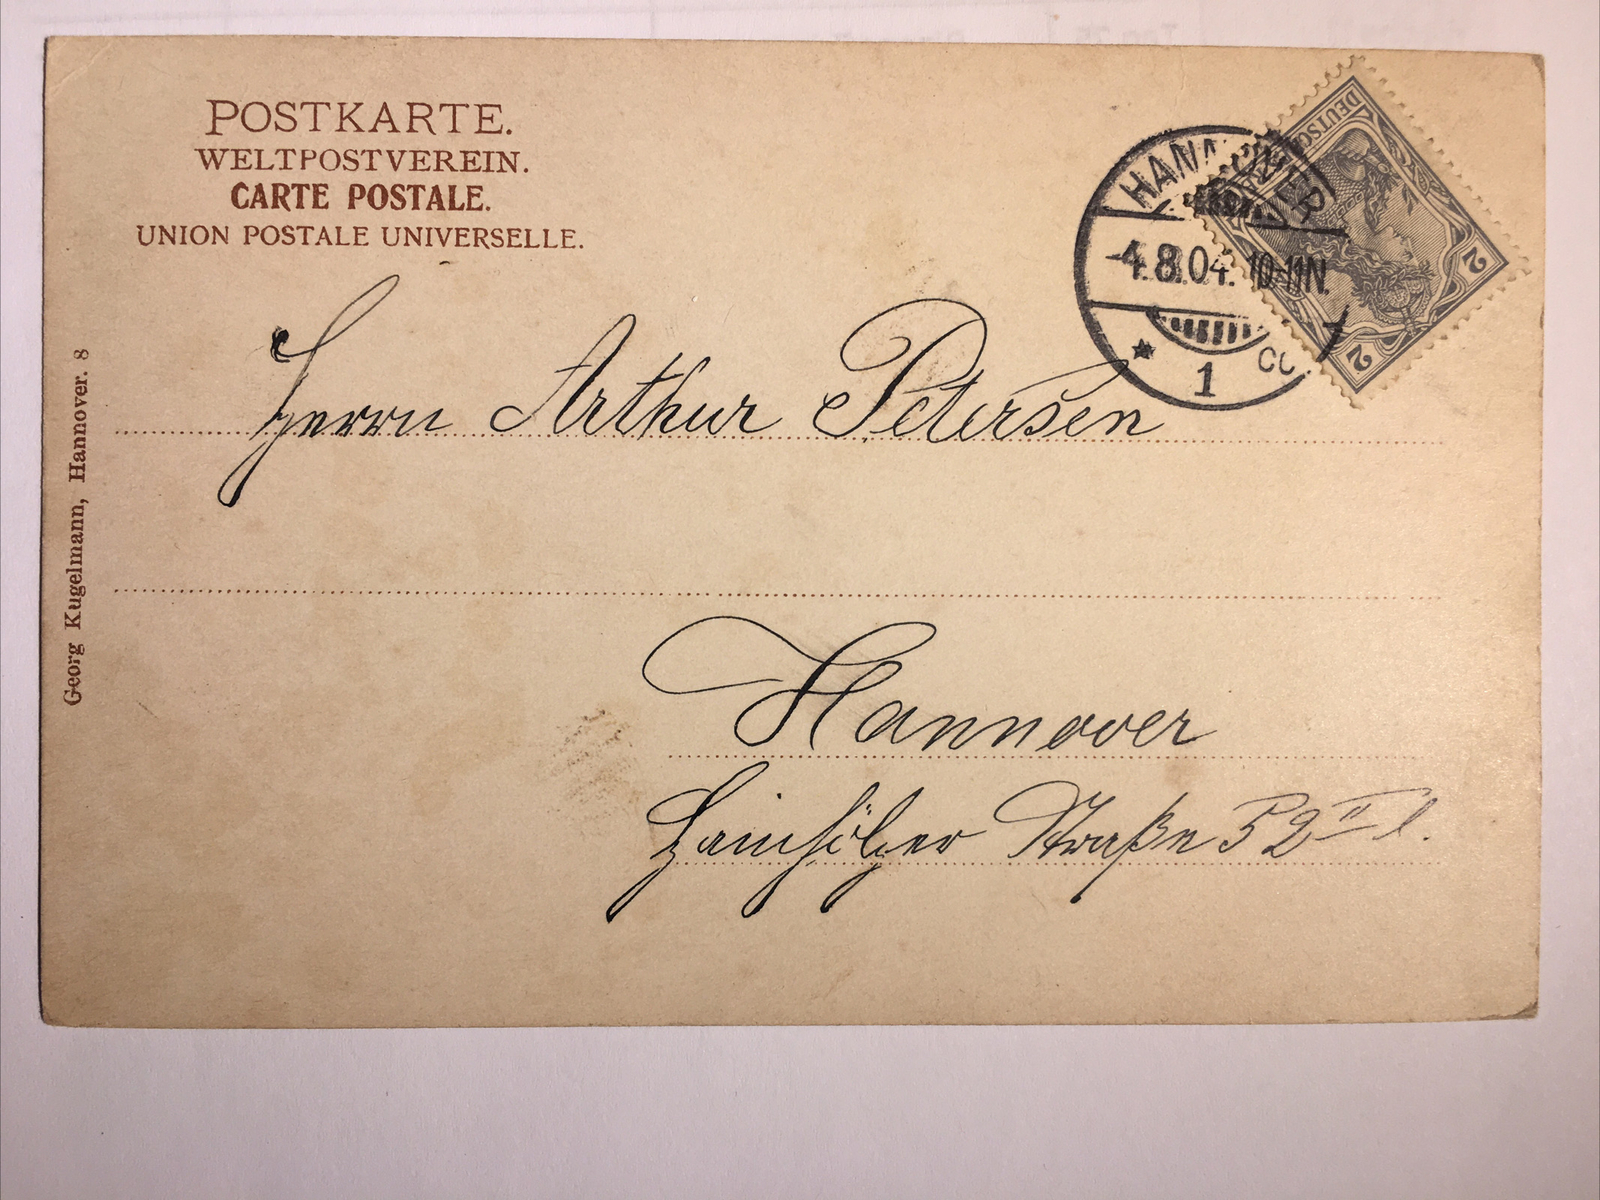 POSTKARTE.
WELTPOSTVEREIN.
CARTE POSTALE.
UNION POSTALE UNIVERSELLE.
HANNOVER
-4.8.04. 10-11N.
1
DEUTSC
2
2
Herrn Arthur Petersen
Hannover
Hainhölzer Straße 52 II l.
Georg Kugelmann, Hannover. 8